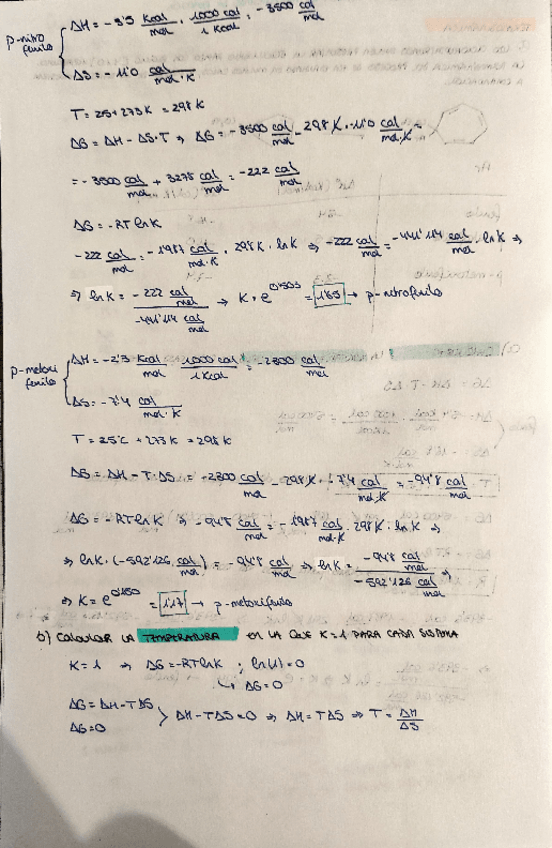 p-nitro fenilo { ΔH = -3'5 Kcal/mol · 1000 cal/1 Kcal = -3500 cal/mol
ΔS = -11'0 cal/mol·K
T = 25+273K = 298K
ΔG = ΔH - ΔS·T ⇒ ΔG = -3500 cal/mol - 298K · -11'0 cal/mol·K =
= -3500 cal/mol + 3278 cal/mol = -222 cal/mol
ΔG = -RT lnK
-222 cal/mol = -1'987 cal/mol·K · 298K · lnK ⇒ -222 cal/mol = -441'114 cal/mol · lnK ⇒
⇒ lnK = -222 cal/mol / -441'114 cal/mol → K = e^0'503 = 1'65 → p-nitrofenilo
p-metoxi fenilo { ΔH = -2'3 Kcal/mol · 1000 cal/1 Kcal = -2300 cal/mol
ΔS = -7'4 cal/mol·K
T = 25°C + 273K = 298K
ΔG = ΔH - T·ΔS = -2300 cal/mol - 298K · -7'4 cal/mol·K = -94'8 cal/mol
ΔG = -RT lnK ⇒ -94'8 cal/mol = -1'987 cal/mol·K · 298K · lnK ⇒
⇒ lnK · (-592'126 cal/mol) = -94'8 cal/mol ⇒ lnK = -94'8 cal/mol / -592'126 cal/mol ⇒
⇒ K = e^0'160 = 1'17 → p-metoxifenilo
b) CALCULAR LA TEMPERATURA EN LA QUE K=1 PARA CADA SISTEMA
K = 1 ⇒ ΔG = -RT lnK ; ln(1) = 0
↳ ΔG = 0
ΔG = ΔH - TΔS
ΔG = 0 } ΔH - TΔS = 0 ⇒ ΔH = TΔS ⇒ T = ΔH/ΔS